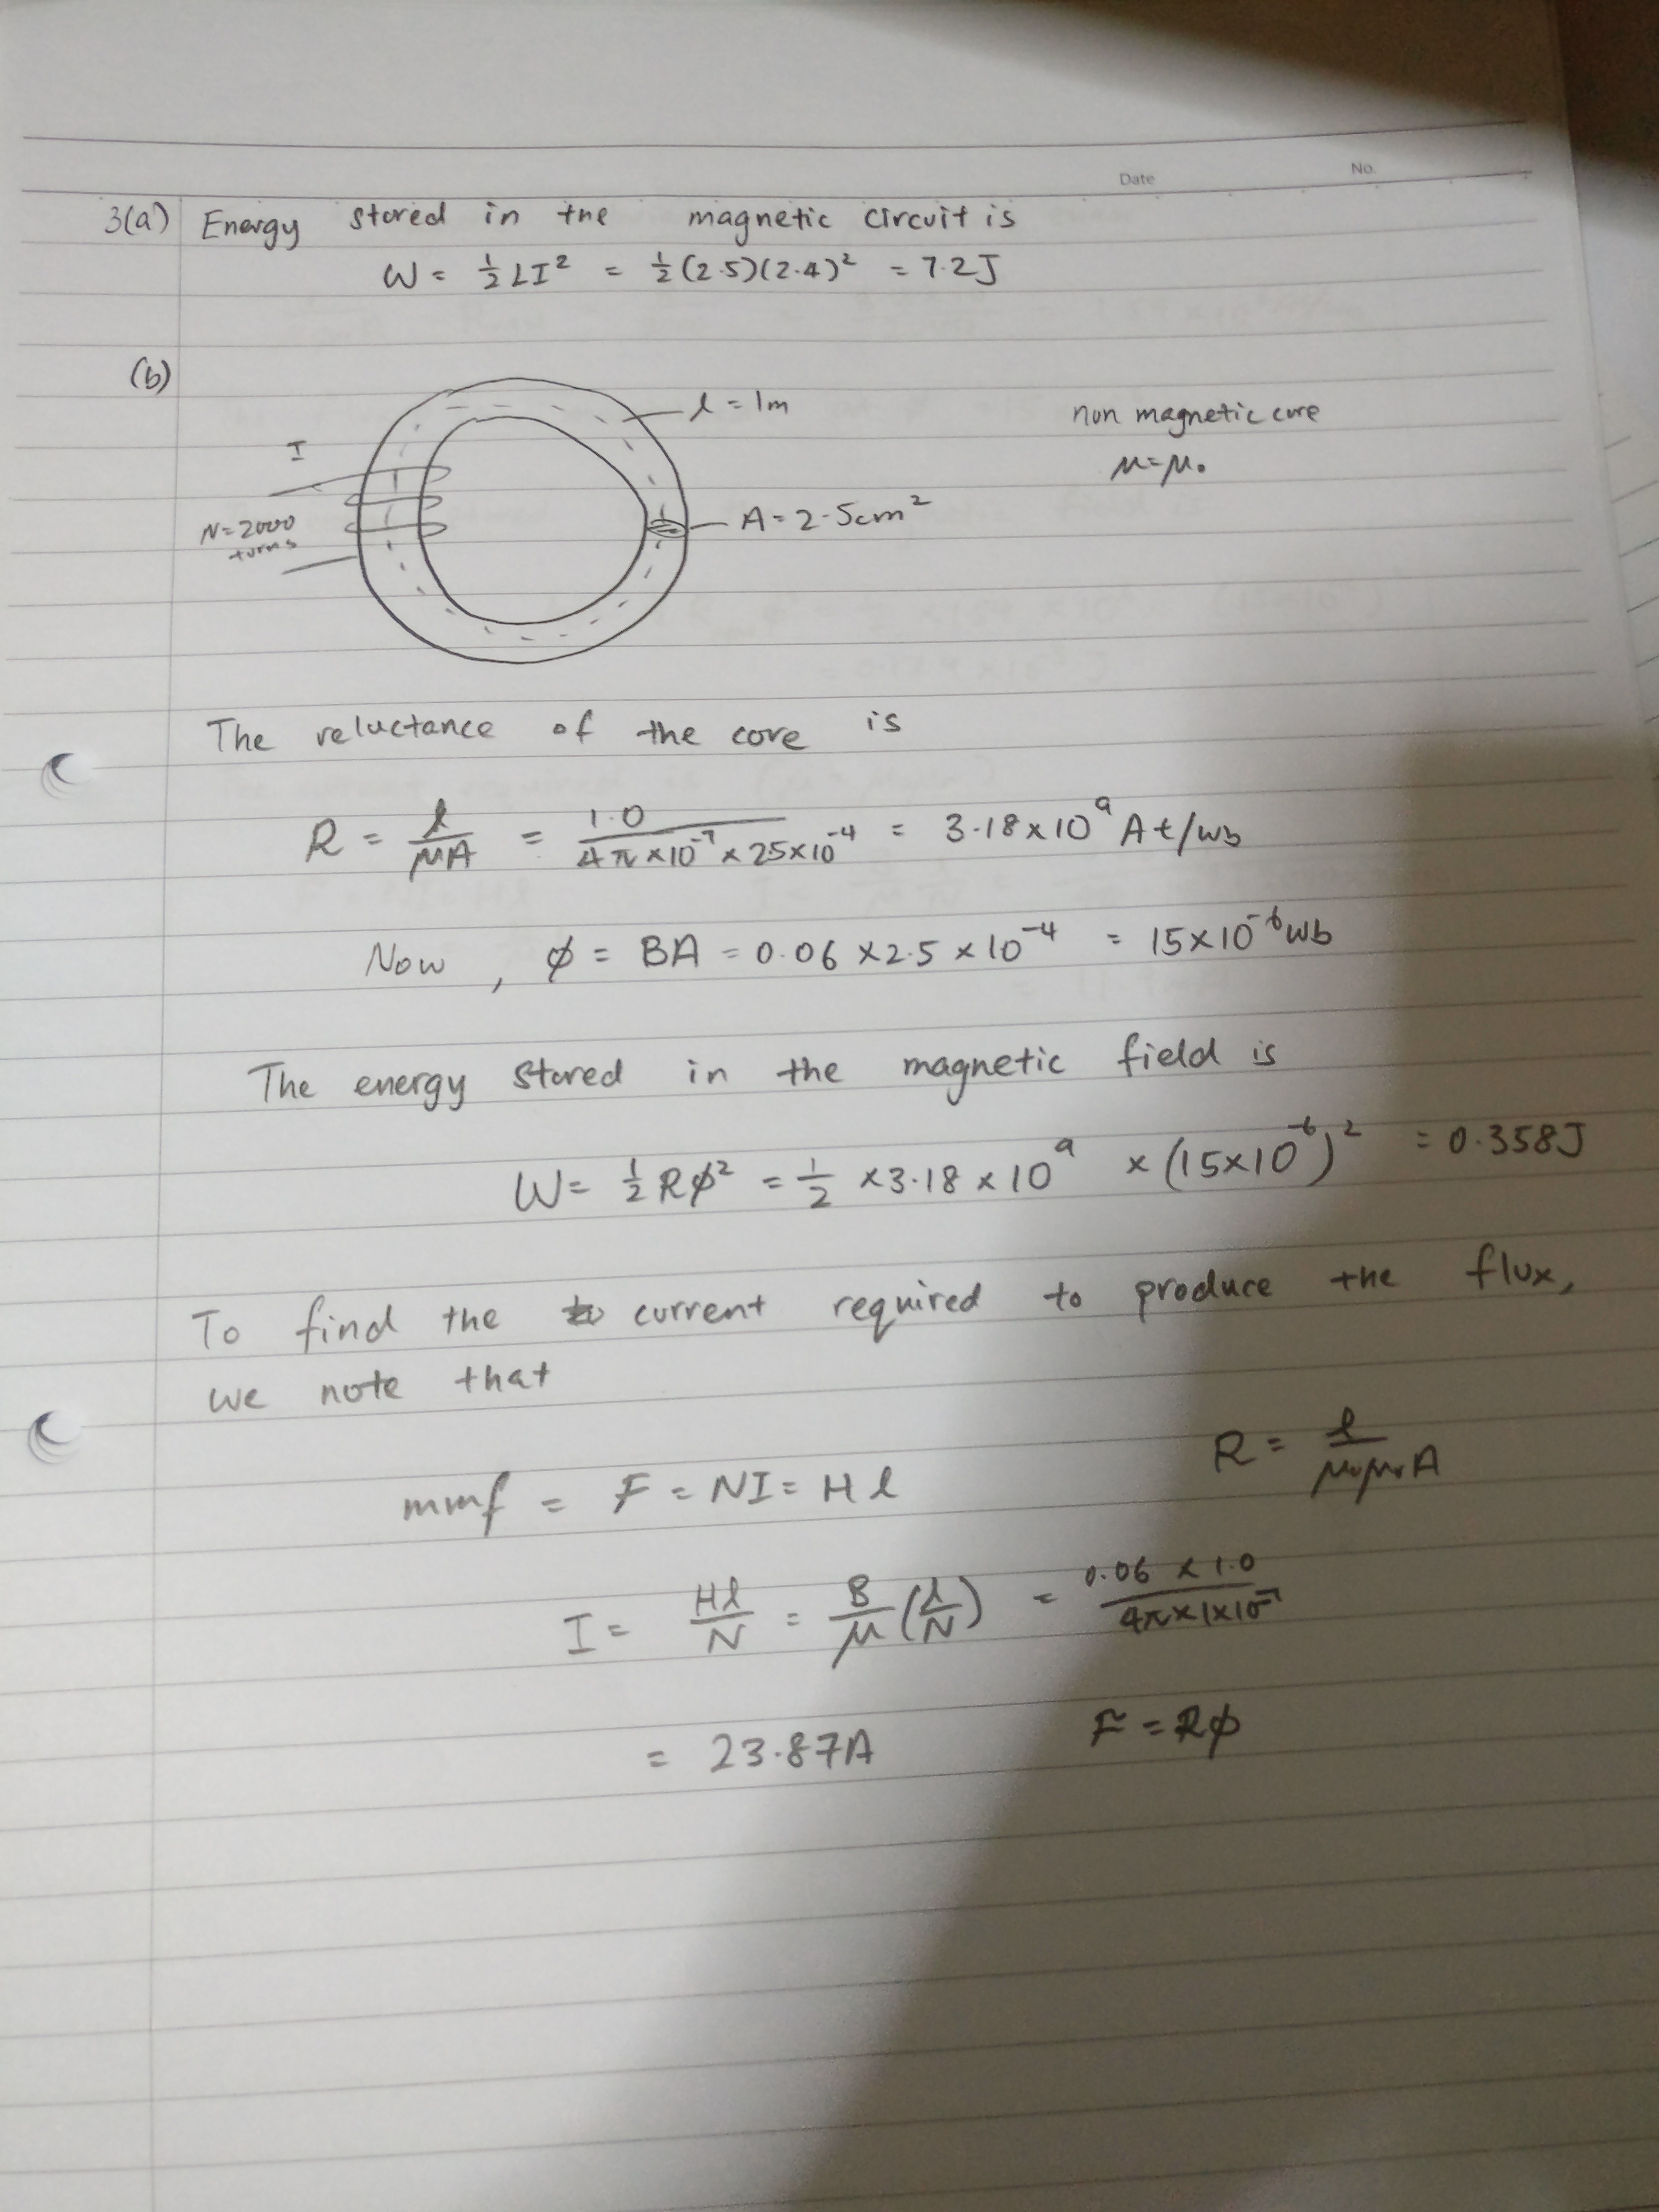 Date No.
3(a) Energy stored in the magnetic circuit is
W = ½LI² = ½(2.5)(2.4)² = 7.2J
(b)
l = 1m
non magnetic core
μ=μ₀
I
N=2000 turns
A=2.5cm²
The reluctance of the core is
R = l/μA = 1.0/(4π×10⁻⁷×25×10⁻⁴) = 3.18×10⁹ At/wb
Now, φ = BA = 0.06×2.5×10⁻⁴ = 15×10⁻⁶wb
The energy stored in the magnetic field is
W = ½Rφ² = ½ ×3.18×10⁹ ×(15×10⁻⁶)² = 0.358J
To find the current required to produce the flux,
we note that
R = l/μ₀μᵣA
mmf = F = NI = Hl
I = Hl/N = B/μ(l/N) = (0.06 × 1.0)/(4π×1×10⁻⁷)
= 23.87A
F = Rφ